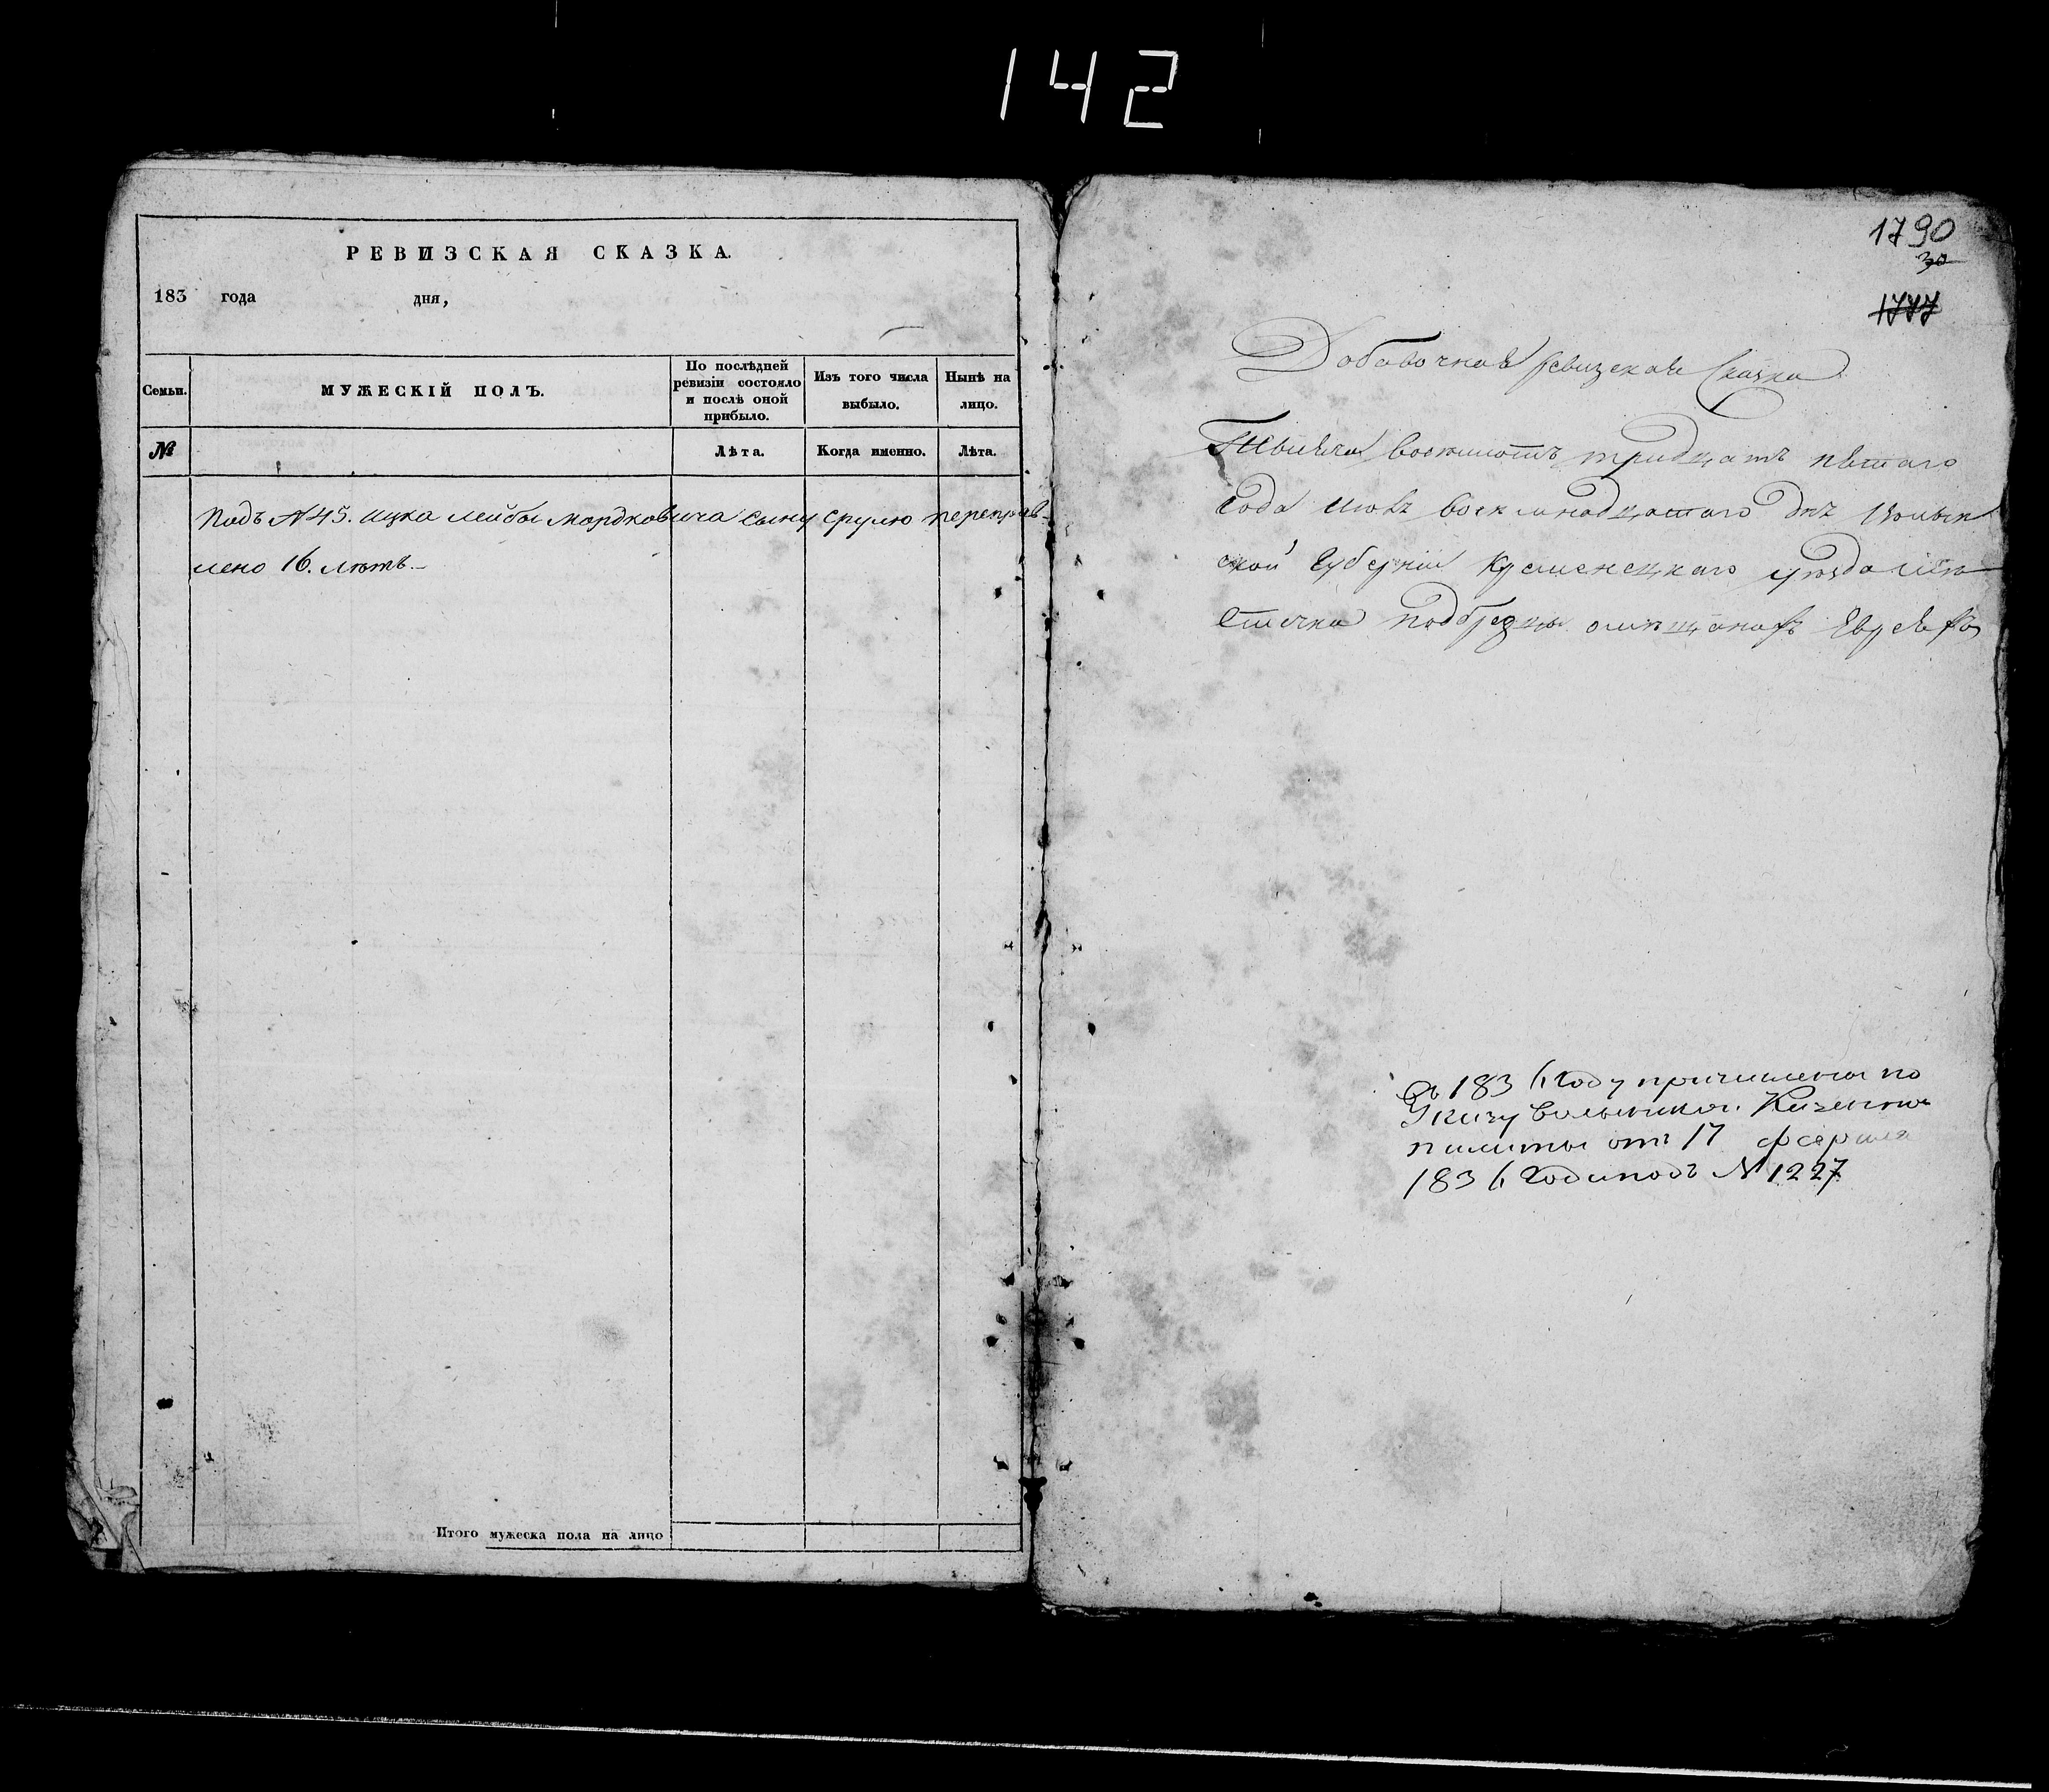 142
РЕВИЗСКАЯ СКАЗКА.
183 года дня,
Семьи.
МУЖЕСКІЙ ПОЛЪ.
По послѣдней ревизіи состояло и послѣ оной прибыло.
Изъ того числа выбыло.
Нынѣ на лицо.
№
Лѣта.
Когда именно.
Лѣта.
Подъ №45. Ицка Лейбы Мордковича сыну Срулю переправ-
лено 16. лѣтъ.
Итого мужеска пола на лицо
1790
30
1777
Добавочная ревизская Сказка
Тысяча восемьсотъ тридцать пятаго
года восемнадцатаго дня Волын
ской Губерніи Кременецкаго уѣзда мѣ
стечка Подбрезцы о мѣщанахъ Евреяхъ
Въ 1836 Году причислены по
Указу Волынской. Казенной
палаты отъ 17 февраля
1836 Года подъ № 1227